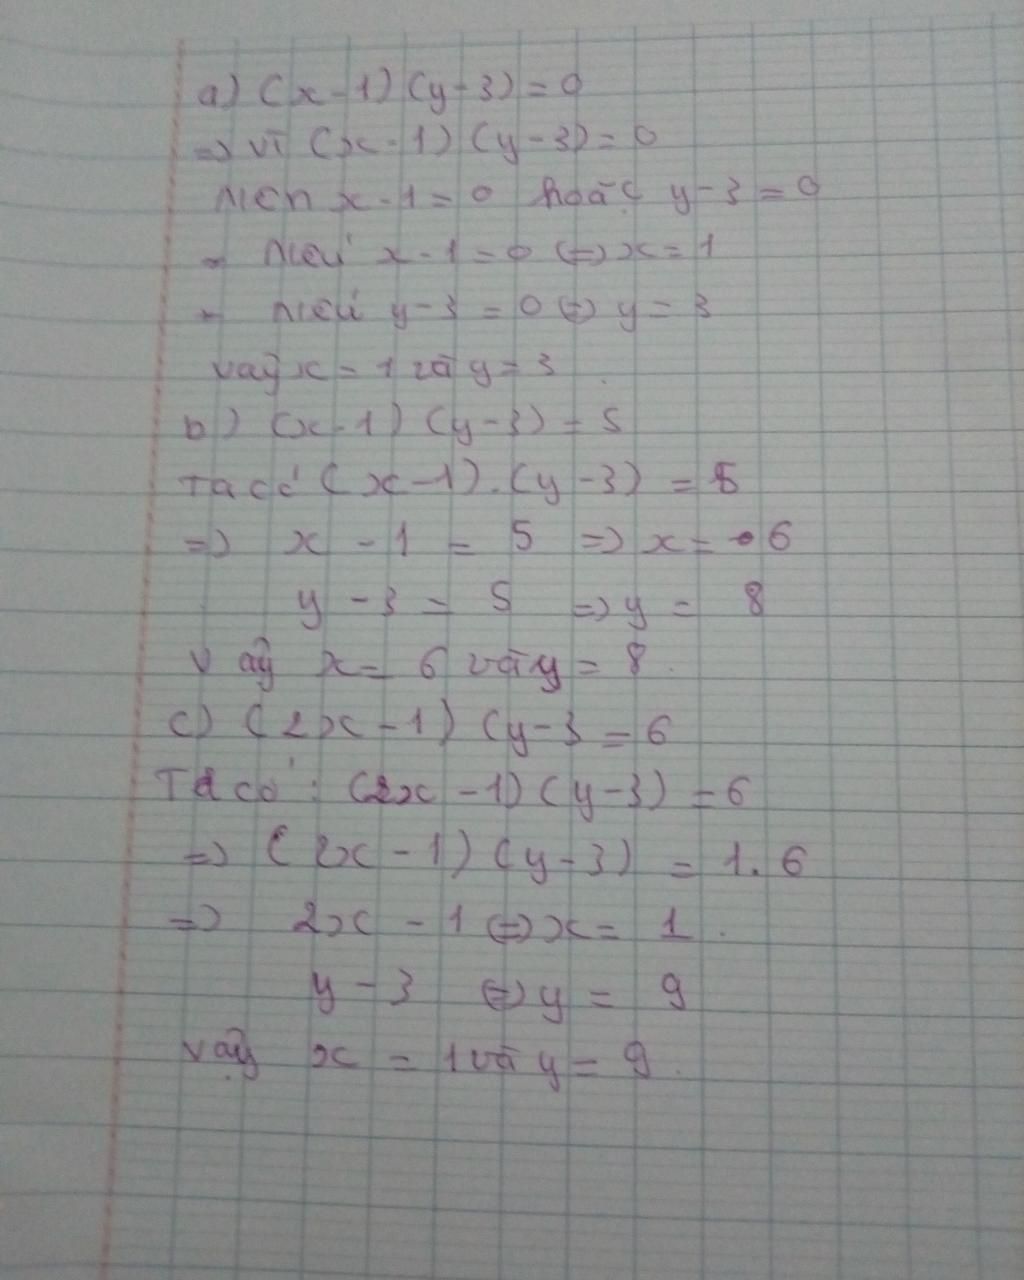 a) (x-1)(y-3)=0
=> vì (x-1)(y-3)=0
Nên x-1=0 hoặc y-3=0
- Nếu x-1=0 <=> x=1
- nếu y-3=0 <=> y=3
vậy x=1 và y=3.
b) (x-1)(y-3)=5
Ta có (x-1).(y-3)=5
=> x-1=5 => x=6
y-3=5 => y=8
Vậy x=6 và y=8.
c) (2x-1)(y-3=6
Ta có: (2x-1)(y-3)=6
=> (2x-1)(y-3)=1.6
=> 2x-1 <=> x=1.
y-3 <=> y=9
Vậy x=1 và y=9.